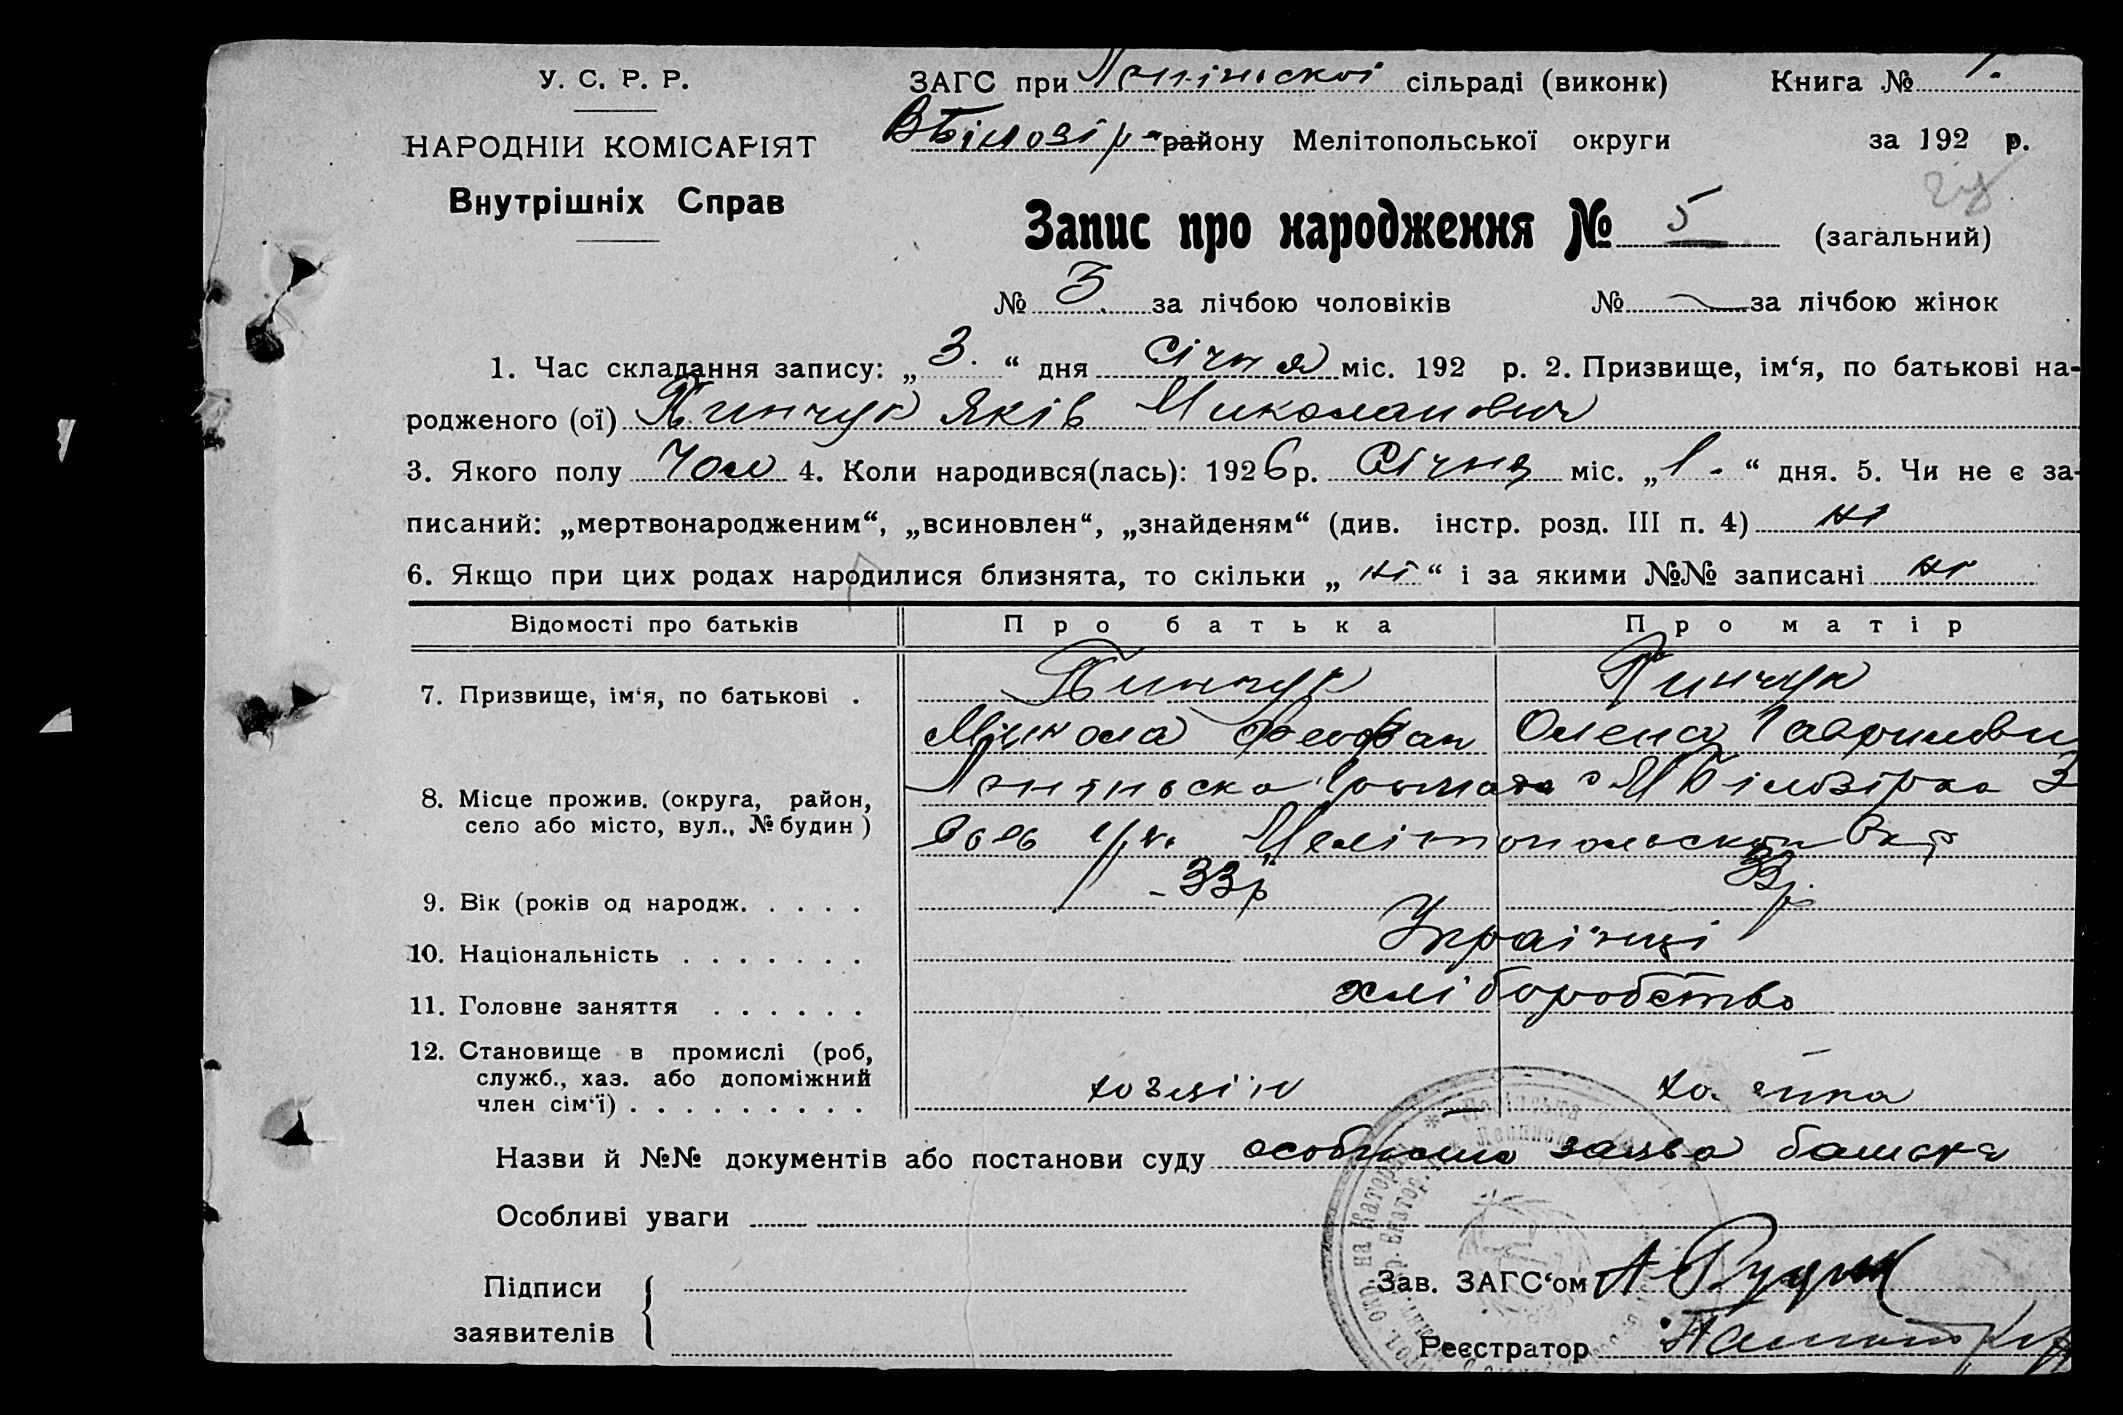 У. С. Р. Р.
ЗАГС при сільраді (виконк) Книга № 1.
району Мелітопольської округи за 192 р.
НАРОДНІЙ КОМІСАРІЯТ
Внутрішніх Справ
Запис про народження № 5 (загальний)
№ 3 за лічбою чоловіків № за лічбою жінок
1. Час складання запису: „ 3. “ дня Січня міс. 192 р. 2. Призвище, ім‘я, по батькові на-
родженого (ої) Пинчук Яків Миколайович
3. Якого полу Чол 4. Коли народився(лась): 1926 р. Січня міс. „ 1 . “ дня. 5. Чи не є за-
писаний: „мертвонародженим“, „всиновлен“, „знайденям“ (див. інстр. розд. III п. 4) ні
6. Якщо при цих родах народилися близнята, то скільки „ ні “ і за якими №№ записані ні
Відомості про батьків Про батька Про матір
7. Призвище, ім‘я, по батькові . Пинчук Пинчук
Микола Феофан Олена Гаврилови
8. Місце прожив. (округа, район,
село або місто, вул., № будин)
Мелітопольскои Окр
9. Вік (років од народж. . . . . 33 р 33 р
10. Національність . . . . . . . Українці
11. Головне заняття . . . . . . хліборобство
12. Становище в промислі (роб,
служб., хаз. або допоміжний
член сім‘ї) . . . . . . . . . хозяїн
Назви й №№ документів або постанови суду особиста заява батька
Особливі уваги
Підписи
заявителів
Зав. ЗАГС‘ом
Реєстратор